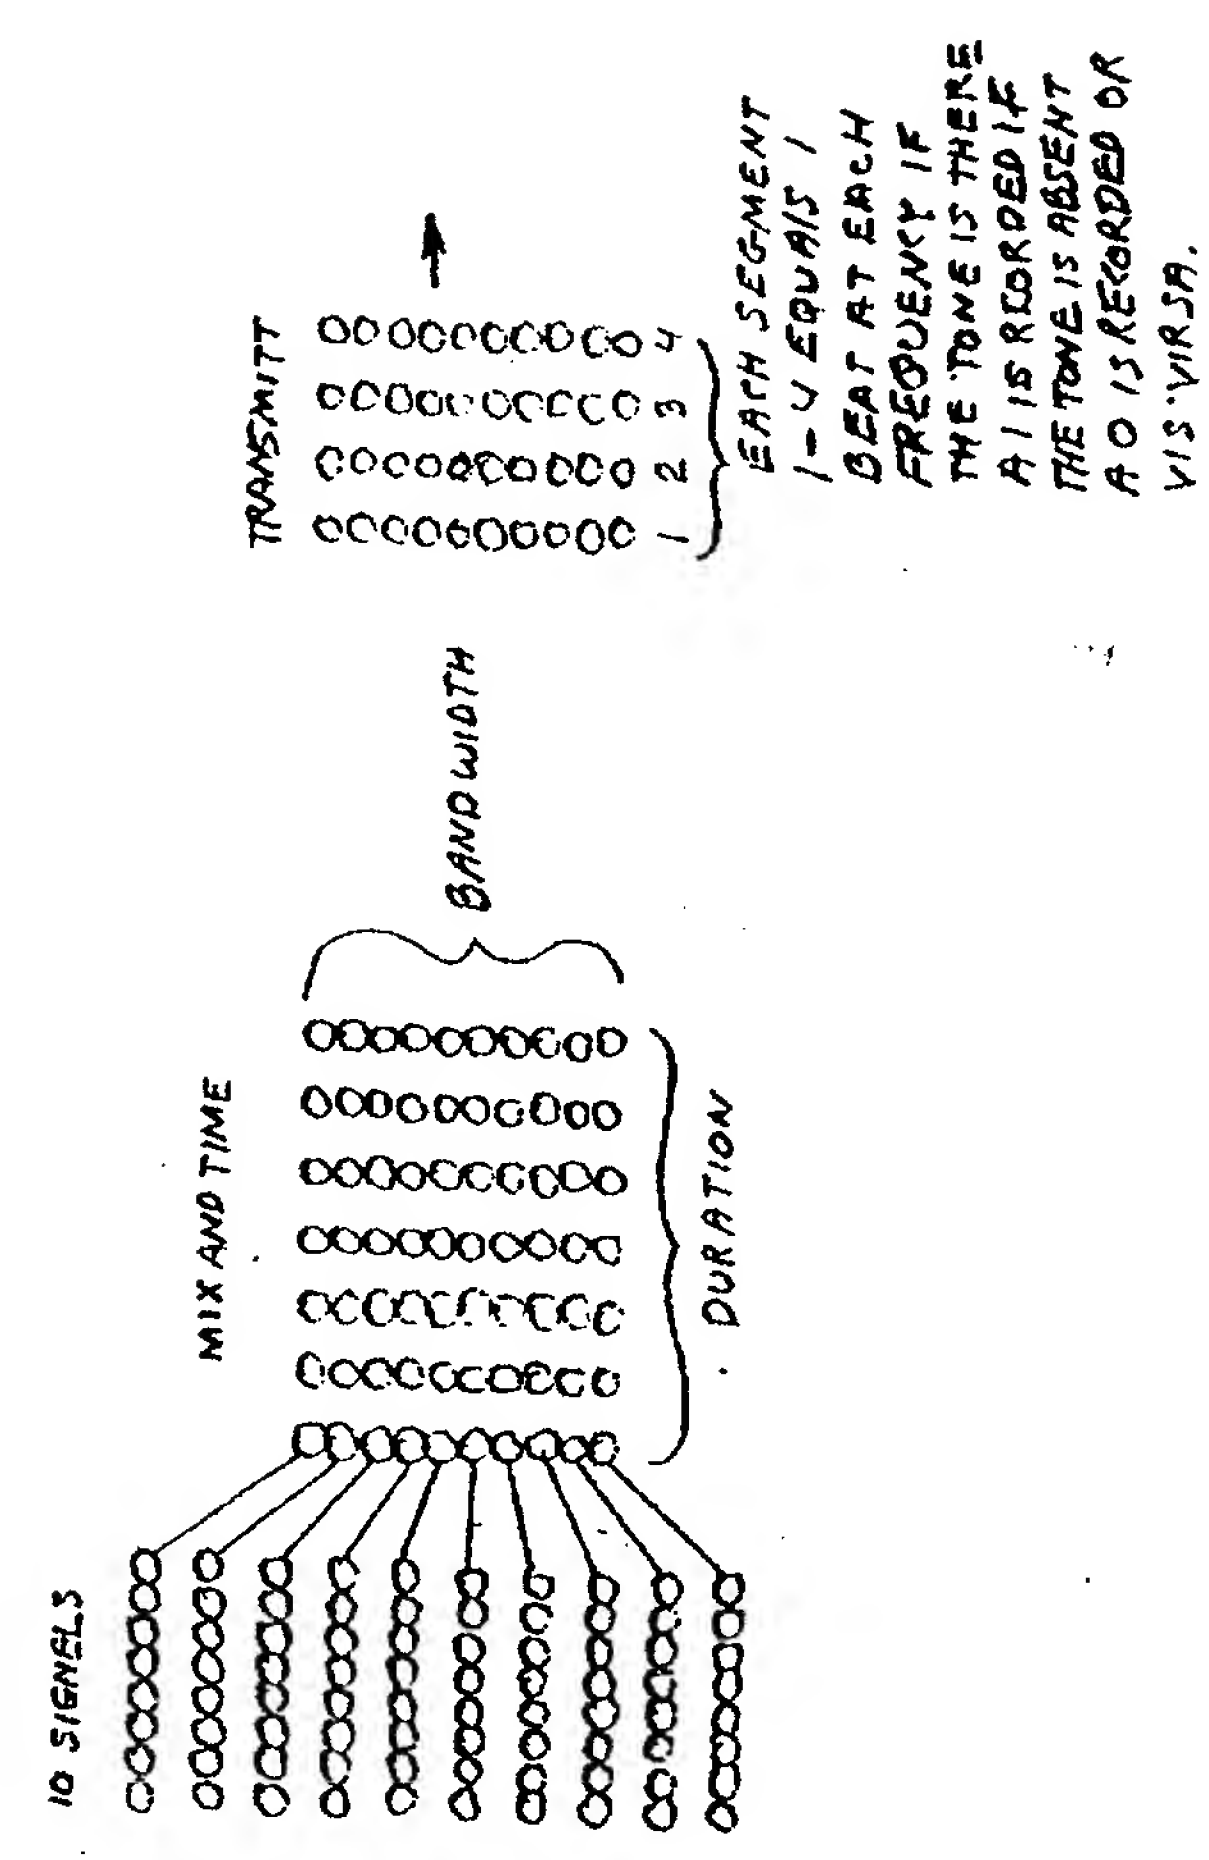 10 SIGNELS
MIX AND TIME
TRANSMITT
BAND WIDTH
DURATION
1 2 3 4
EACH SEGMENT
1-4 EQUALS 1
BEAT AT EACH
FREQUENCY IF
THE TONE IS THERE
A 1 IS RECORDED IF
THE TONE IS ABSENT
A O IS RECORDED OR
VIS VIRSA.